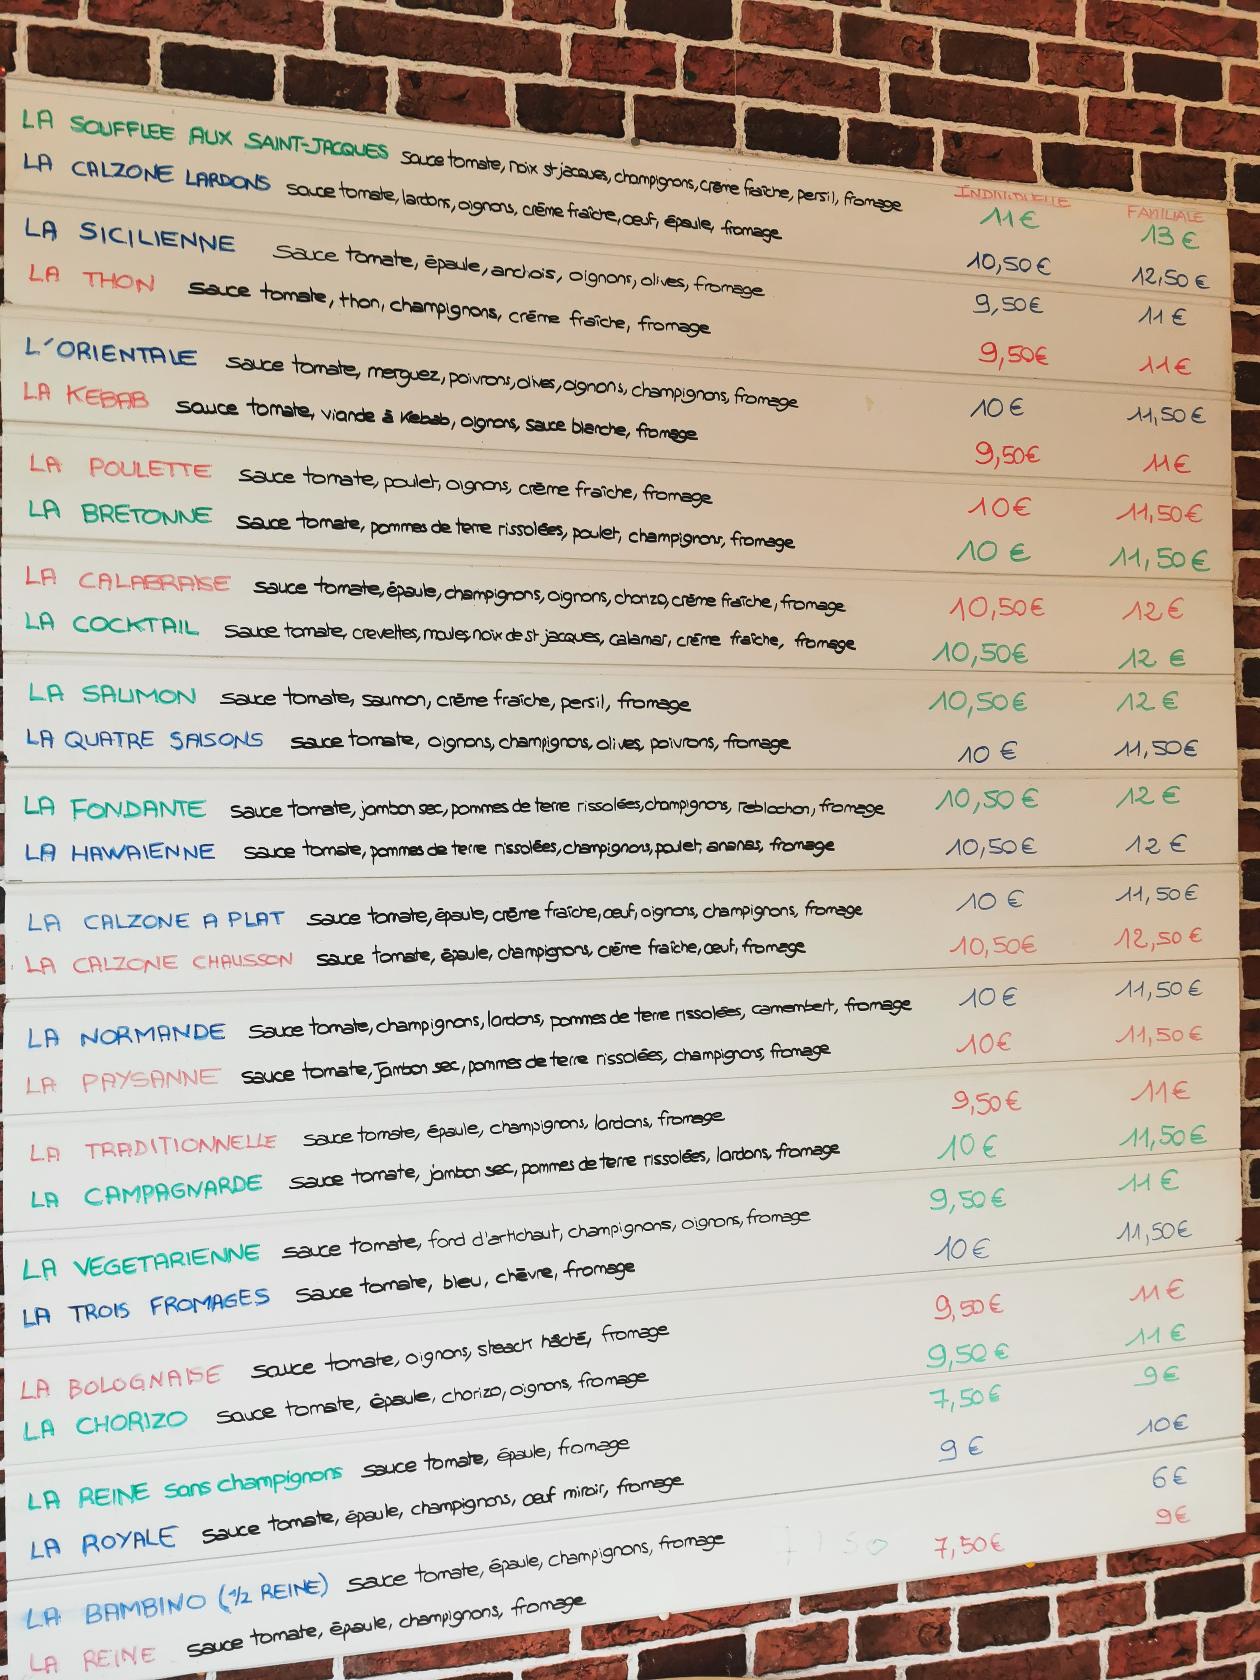 INDIVIDUELLE FAMILIALE
LA SOUFFLEE AUX SAINT-JACQUES sauce tomate, noix st jacques, champignons, crème fraîche, persil, fromage 11€ 13€
LA CALZONE LARDONS sauce tomate, lardons, oignons, crème fraîche, oeuf, épaule, fromage 10,50€ 12,50€
LA SICILIENNE sauce tomate, épaule, anchois, oignons, olives, fromage 9,50€ 11€
LA THON sauce tomate, thon, champignons, crème fraîche, fromage 9,50€ 11€
L'ORIENTALE sauce tomate, merguez, poivrons, olives, oignons, champignons, fromage 10€ 11,50€
LA KEBAB sauce tomate, viande à kebab, oignons, sauce blanche, fromage 9,50€ 11€
LA POULETTE sauce tomate, poulet, oignons, crème fraîche, fromage 10€ 11,50€
LA BRETONNE sauce tomate, pommes de terre rissolées, poulet, champignons, fromage 10€ 11,50€
LA CALABRAISE sauce tomate, épaule, champignons, oignons, chorizo, crème fraîche, fromage 10,50€ 12€
LA COCKTAIL sauce tomate, crevettes, moules, noix de st jacques, calamar, crème fraîche, fromage 10,50€ 12€
LA SAUMON sauce tomate, saumon, crème fraîche, persil, fromage 10,50€ 12€
LA QUATRE SAISONS sauce tomate, oignons, champignons, olives, poivrons, fromage 10€ 11,50€
LA FONDANTE sauce tomate, jambon sec, pommes de terre rissolées, champignons, reblochon, fromage 10,50€ 12€
LA HAWAIENNE sauce tomate, pommes de terre rissolées, champignons, poulet, ananas, fromage 10,50€ 12€
LA CALZONE A PLAT sauce tomate, épaule, crème fraîche, oeuf, oignons, champignons, fromage 10€ 11,50€
LA CALZONE CHAUSSON sauce tomate, épaule, champignons, crème fraîche, oeuf, fromage 10,50€ 12,50€
LA NORMANDE sauce tomate, champignons, lardons, pommes de terre rissolées, camembert, fromage 10€ 11,50€
LA PAYSANNE sauce tomate, jambon sec, pommes de terre rissolées, champignons, fromage 10€ 11,50€
LA TRADITIONNELLE sauce tomate, épaule, champignons, lardons, fromage 9,50€ 11€
LA CAMPAGNARDE sauce tomate, jambon sec, pommes de terre rissolées, lardons, fromage 10€ 11,50€
LA VEGETARIENNE sauce tomate, fond d'artichaut, champignons, oignons, fromage 9,50€ 11€
LA TROIS FROMAGES sauce tomate, bleu, chèvre, fromage 10€ 11,50€
LA BOLOGNAISE sauce tomate, oignons, steack hâché, fromage 9,50€ 11€
LA CHORIZO sauce tomate, épaule, chorizo, oignons, fromage 9,50€ 11€
LA REINE sans champignons sauce tomate, épaule, fromage 7,50€ 9€
LA ROYALE sauce tomate, épaule, champignons, oeuf miroir, fromage 9€ 10€
LA BAMBINO (1/2 REINE) sauce tomate, épaule, champignons, fromage 6€
LA REINE sauce tomate, épaule, champignons, fromage 7,50€ 9€